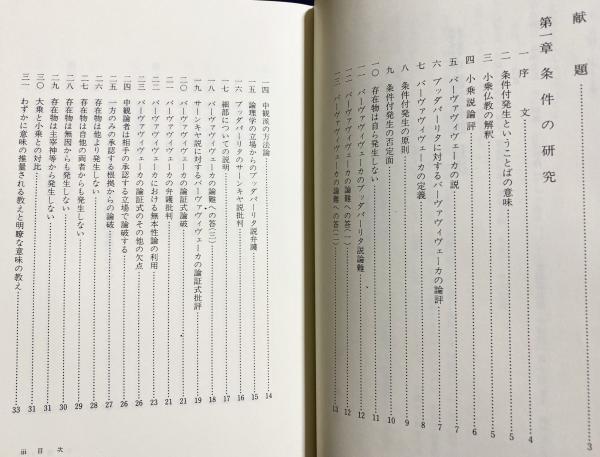 献題……3
第一章 条件の研究
一 序文……4
二 条件付発生ということばの意味……5
三 小乗仏教の解釈……5
四 小乗説論評……6
五 バーヴァヴィヴェーカの説……7
六 ブッダパーリタに対するバーヴァヴィヴェーカの論評……7
七 バーヴァヴィヴェーカの定義……8
八 条件付発生の原則……9
九 条件付発生の否定面……10
一〇 存在物は自ら発生しない……11
一一 バーヴァヴィヴェーカのブッダパーリタ説論難……12
一二 バーヴァヴィヴェーカの論難への答(一)……12
一三 バーヴァヴィヴェーカの論難への答(二)……13
一四 中観派の方法論……14
一五 論理学の立場からのブッダパーリタ説弁護……15
一六 ブッダパーリタのサーンキヤ説批判……16
一七 細部についての説明……17
一八 バーヴァヴィヴェーカの論難への答(三)……18
一九 サーンキヤ説に対するバーヴァヴィヴェーカの論証式批評……19
二〇 バーヴァヴィヴェーカの論証式論破……21
二一 バーヴァヴィヴェーカの弁護批判……21
二二 バーヴァヴィヴェーカにおける無本性論の利用……23
二三 バーヴァヴィヴェーカの論証式のその他の欠点……26
二四 中観論者は相手の承認する立場で論破する……26
二五 一方のみの承認する根拠からの論破……27
二六 存在物は他より発生しない……28
二七 存在物は自他の両者からも発生しない……29
二八 存在物は無因からも発生しない……30
二九 存在物は主宰神等から発生しない……31
三〇 大乗と小乗との対比……31
三一 わずかに意味の推量される教えと明瞭な意味の教え……33
iii 目次